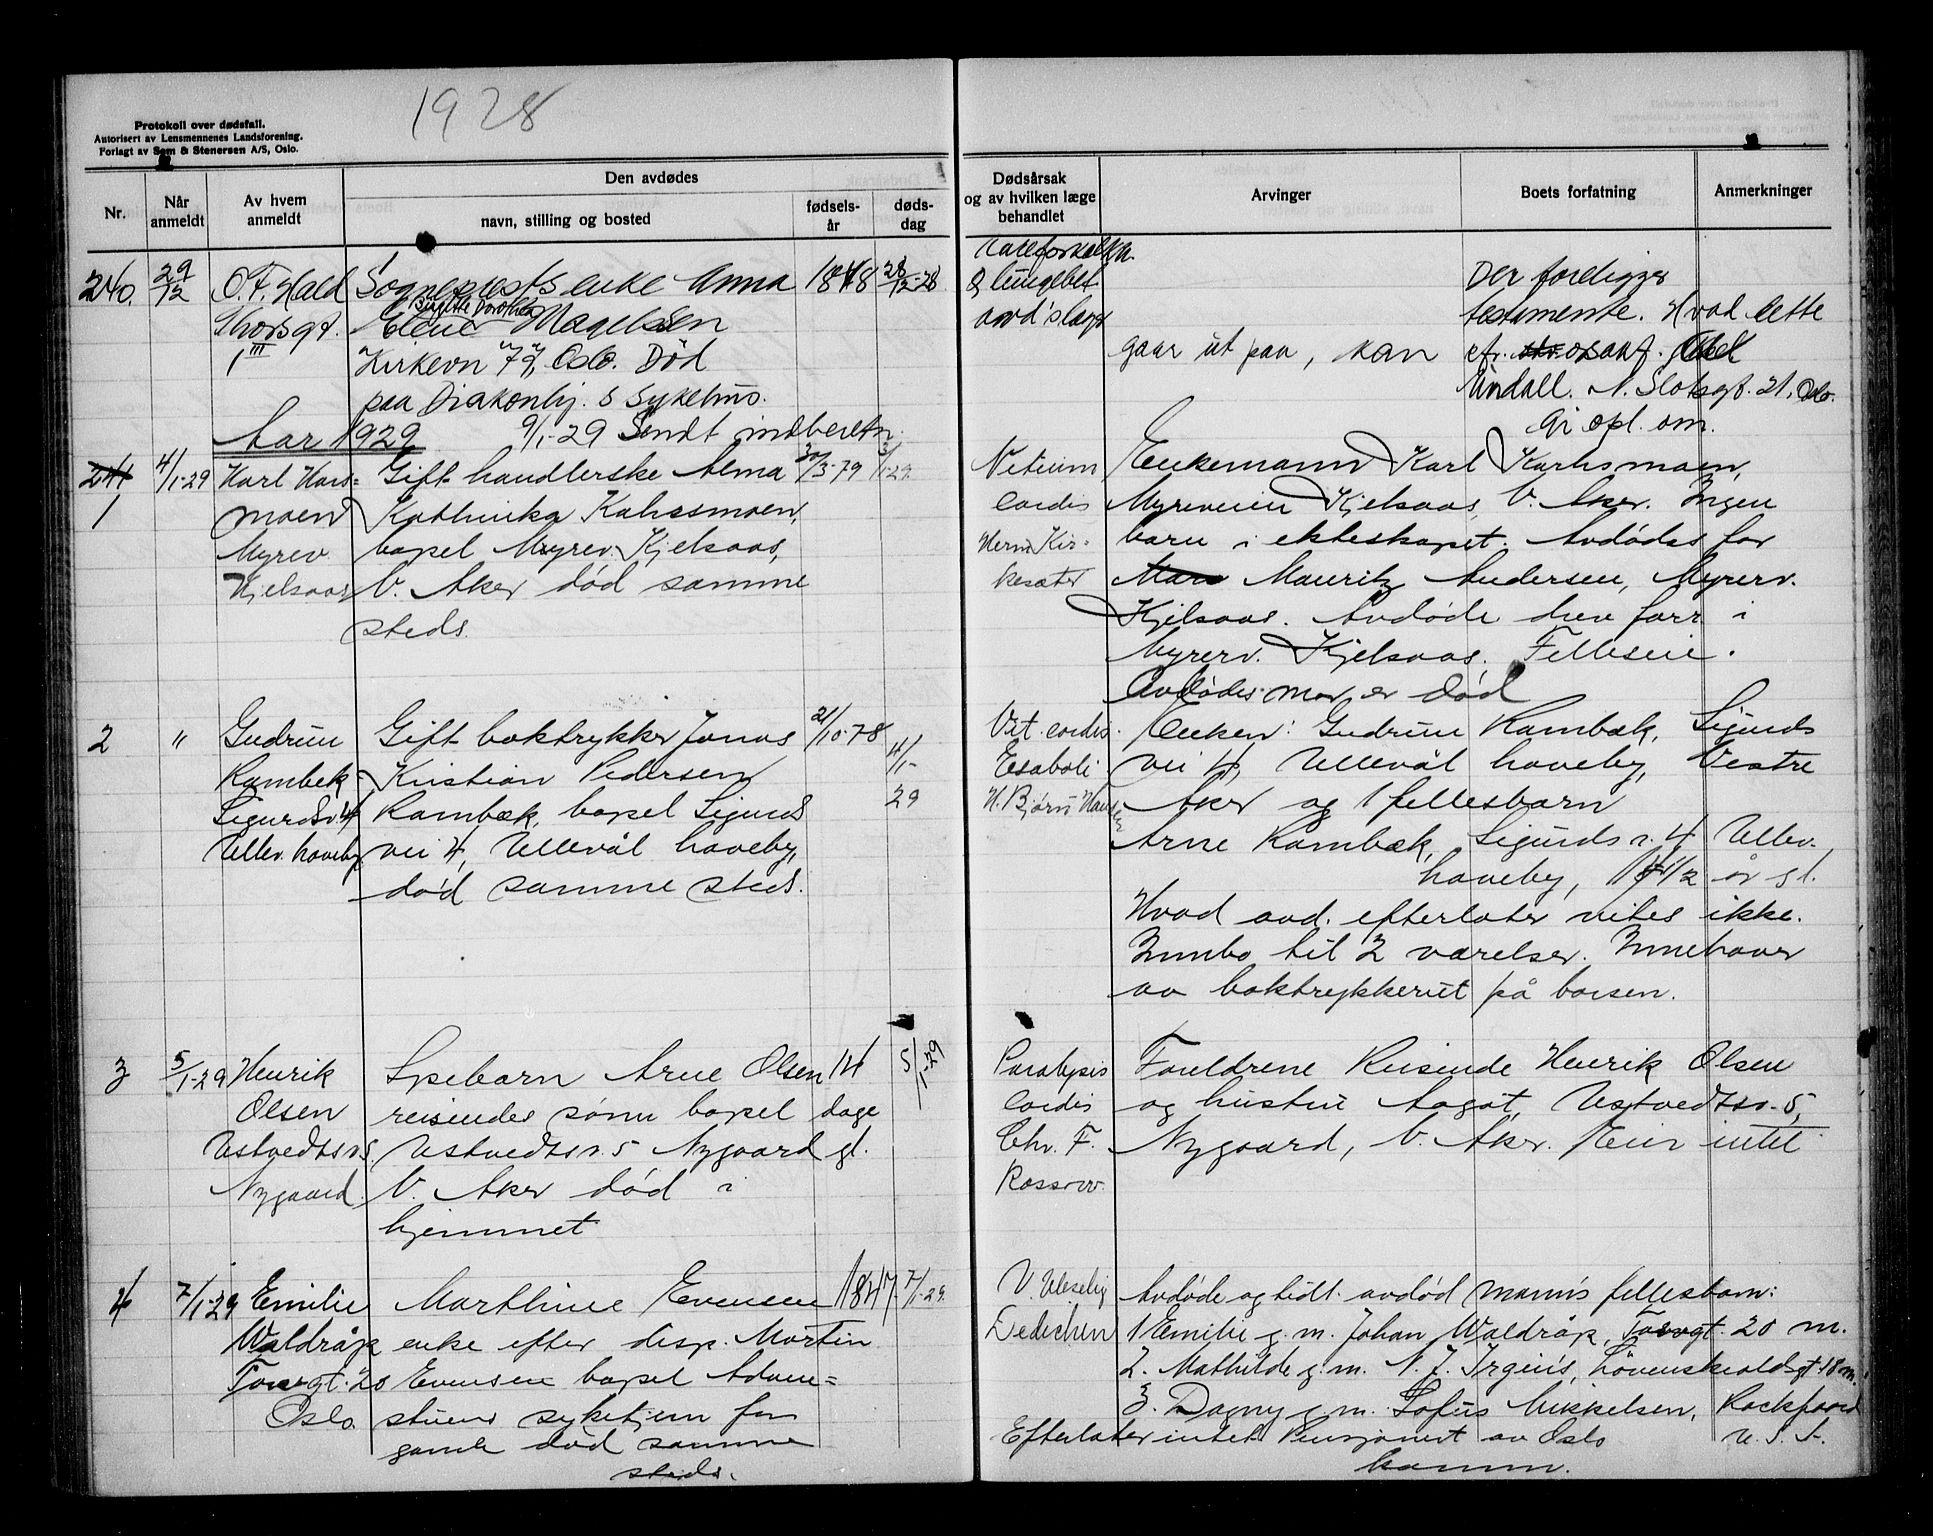 1928
Protokoll over dødsfall.
Autorisert av Lensmennenes Landsforening.
Forlagt av Sem & Stenersen A/S, Oslo.
Nr.
Når anmeldt
Av hvem anmeldt
Den avdødes
navn, stilling og bosted
fødsels-år
døds-dag
Dødsårsak og av hvilken læge behandlet
Arvinger
Boets forfatning
Anmerkninger
240. 29/12 O. F. Hald Sogneprests enke Anna 1848 28/12-28
Thorsgt. Birgitte Dorothea
1 III Magelssen
Kirkevn 79, Oslo. Død
paa Diakonhj.s Sykehus.
& lungebet
Der foreligger
testamente. Hvad dette
gaar ut paa, kan
Lindall. N. Slotsgt. 21, Oslo.
gi opl. om.
Aar 1929 9/1-29 Sendt indberetn.
241 4/1-29 Karl Gift handlerske Alma 30/3-79 3/1-29.
1 moen Kathinka
Myrev. bopel Myrev. Kjelsaas,
Kjelsaas V. Aker død samme
steds.
Vitium
cordis
Herm Kir-
kesæter
Enkemann Karl
Myreveien Kjelsaas, V. Aker. Ingen
barn i ekteskapet. Avdødes far
Mauritz Andersen, Myrerv.
Kjelsaas. Avdøde drev forr i
Myrerv. Kjelsaas. Felleseie.
Avdødes mor er død
2 " Gudrun Gift boktrykker Jonas 21/10-78 4/1-
Rambek Kristian Pedersen 29
Sigurdsv. 4 Rambæk, bopel Sigurds
Ullev. haveby vei 4, Ullevål haveby,
død samme steds.
Vit. cordis.
H. Bjørn Hansen
Enken: Gudrun Rambæk, Sigurds
vei 4, Ullevål haveby, Vestre
Aker og 1 fellesbarn
Arne Rambæk, Sigurds v. 4 Ullev.
haveby, 1/2 år gl.
Hvad avd. efterlater vites ikke.
Innbo til 2 værelser. Innehaver
av boktrykkeriet på børsen.
3 5/1-29 Henrik Spebarn Arne Olsen 14 5/1-29
Olsen reisendes sønn bopel dage
Ustvedtsv. 5 Ustvedtsv. 5 Nygaard gl.
Nygaard. V. Aker død i
hjemmet
Paralysis
cordis
Chr. F.
Foreldrene Reisende Henrik Olsen
og hustru Aagot, Ustvedtsv. 5,
Nygaard, V. Aker. Eier intet
4 7/1-29 Emilie Marthine Evensen 1847 7/1-29.
Waldråp enke efter disp. Martin
Torvgt. 20 Evensen bopel Adven=
Oslo. sykehjem for
gamle død samme
steds.
Dedichen
Avdøde og tidl. avdød manns fellesbarn:
1 Emilie g. m. Johan Waldråp, Torvgt. 20 m.
2. Mathilde g. m. N. J. Irgens, Løvenskioldsgt. 18 m.
3. Dagny g. m. Sofus Mikkelsen, Rockford
Efterlater intet Pensjonert av Oslo U. S. A.
komm.